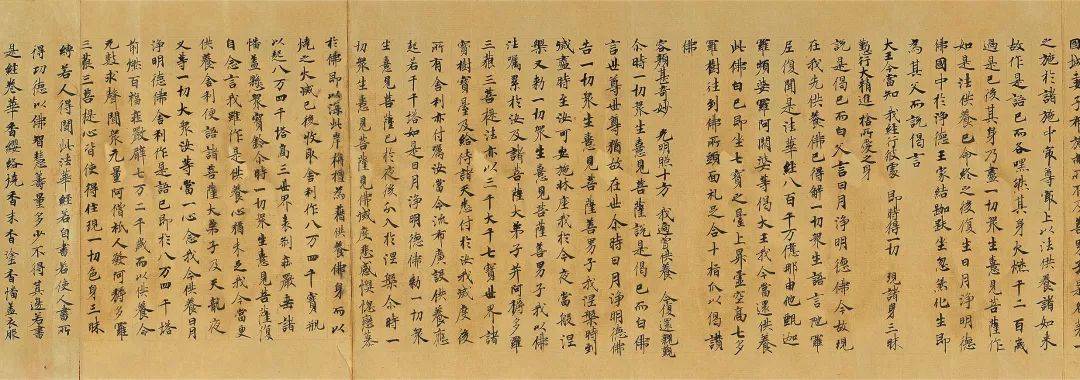 國城妻子布施亦所不及善男子是名第一
之施於諸施中最尊最上以法供養諸如來
故作是語已而各嘿然其身火燃千二百歲
過是已後其身乃盡一切眾生憙見菩薩作
如是法供養已命終之後復生日月淨明德
佛國中於淨德王家結跏趺坐忽然化生即
為其父而說偈言
大王今當知 我經行彼處 即時得一切 現諸身三昧
懃行大精進 捨所愛之身
說是偈已而白父言日月淨明德佛今故現
在我先供養佛已得解一切眾生語言陀羅
尼復聞是法華經八百千万億那由他甄迦
羅頻婆羅阿閦婆等偈大王我今當還供養
此佛白已即坐七寶之臺上昇虛空高七多
羅樹往到佛所頭面礼足合十指爪以偈讚
佛
容顏甚奇妙 光明照十方 我適曾供養 今復還親覲
尒時一切眾生憙見菩薩說是偈已而白佛
言世尊世尊猶故在世尒時日月淨明德佛
告一切眾生憙見菩薩善男子我涅槃時到
滅盡時至汝可安施牀座我於今夜當般涅
槃又勑一切眾生憙見菩薩善男子我以佛
法囑累於汝及諸菩薩大弟子并阿耨多羅
三藐三菩提法亦以三千大千七寶世界諸
寶樹寶臺及給侍諸天悉付於汝我滅度後
所有舍利亦付囑汝當令流布廣設供養應
起若干千塔如是日月淨明德佛勑一切眾
生憙見菩薩已於夜後分入於涅槃尒時一
切眾生憙見菩薩見佛滅度悲感懊惱戀慕
於佛即以海此岸栴檀為𧂐供養佛身而以
燒之火滅已後收取舍利作八万四千寶瓶
以起八万四千塔高三世界表剎莊嚴垂諸
幡蓋懸眾寶鈴尒時一切眾生憙見菩薩復
自念言我雖作是供養心猶未足我今當更
供養舍利便語諸菩薩大弟子及天龍夜
叉等一切大眾汝等當一心念我今供養日月
淨明德佛舍利作是語已即於八万四千塔
前燃百福莊嚴臂七万二千歲而以供養令
无數求聲聞眾无量阿僧祇人發阿耨多羅
三藐三菩提心皆使得住現一切色身三昧
縛若人得聞此法華經若自書若使人書所
得功德以佛智慧籌量多少不得其邊若書
是經卷華香瓔珞燒香末香塗香幡蓋衣服